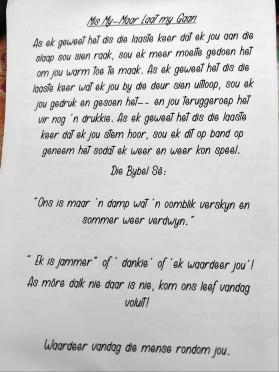 Mis My-Maar Laat my Gaan
As ek geweet het dis die laaste keer dat ek jou aan die
slaap sou sien raak, sou ek meer moeite gedoen het
om jou warm toe te maak. As ek geweet het dis die
laaste keer wat ek jou by die deur sien uitloop, sou ek
jou gedruk en gesoen het-- en jou teruggeroep het
vir nog 'n drukkie. As ek geweet het dis die laaste
keer dat ek jou stem hoor, sou ek dit op band op
geneem het sodat ek weer en weer kon speel.
Die Bybel Sê:
"Ons is maar 'n damp wat 'n oomblik verskyn en
sommer weer verdwyn."
" Ek is jammer" of ' dankie' of 'ek waardeer jou'!
As môre dalk nie daar is nie, kom ons leef vandag
voluit!
Waardeer vandag die mense rondom jou.